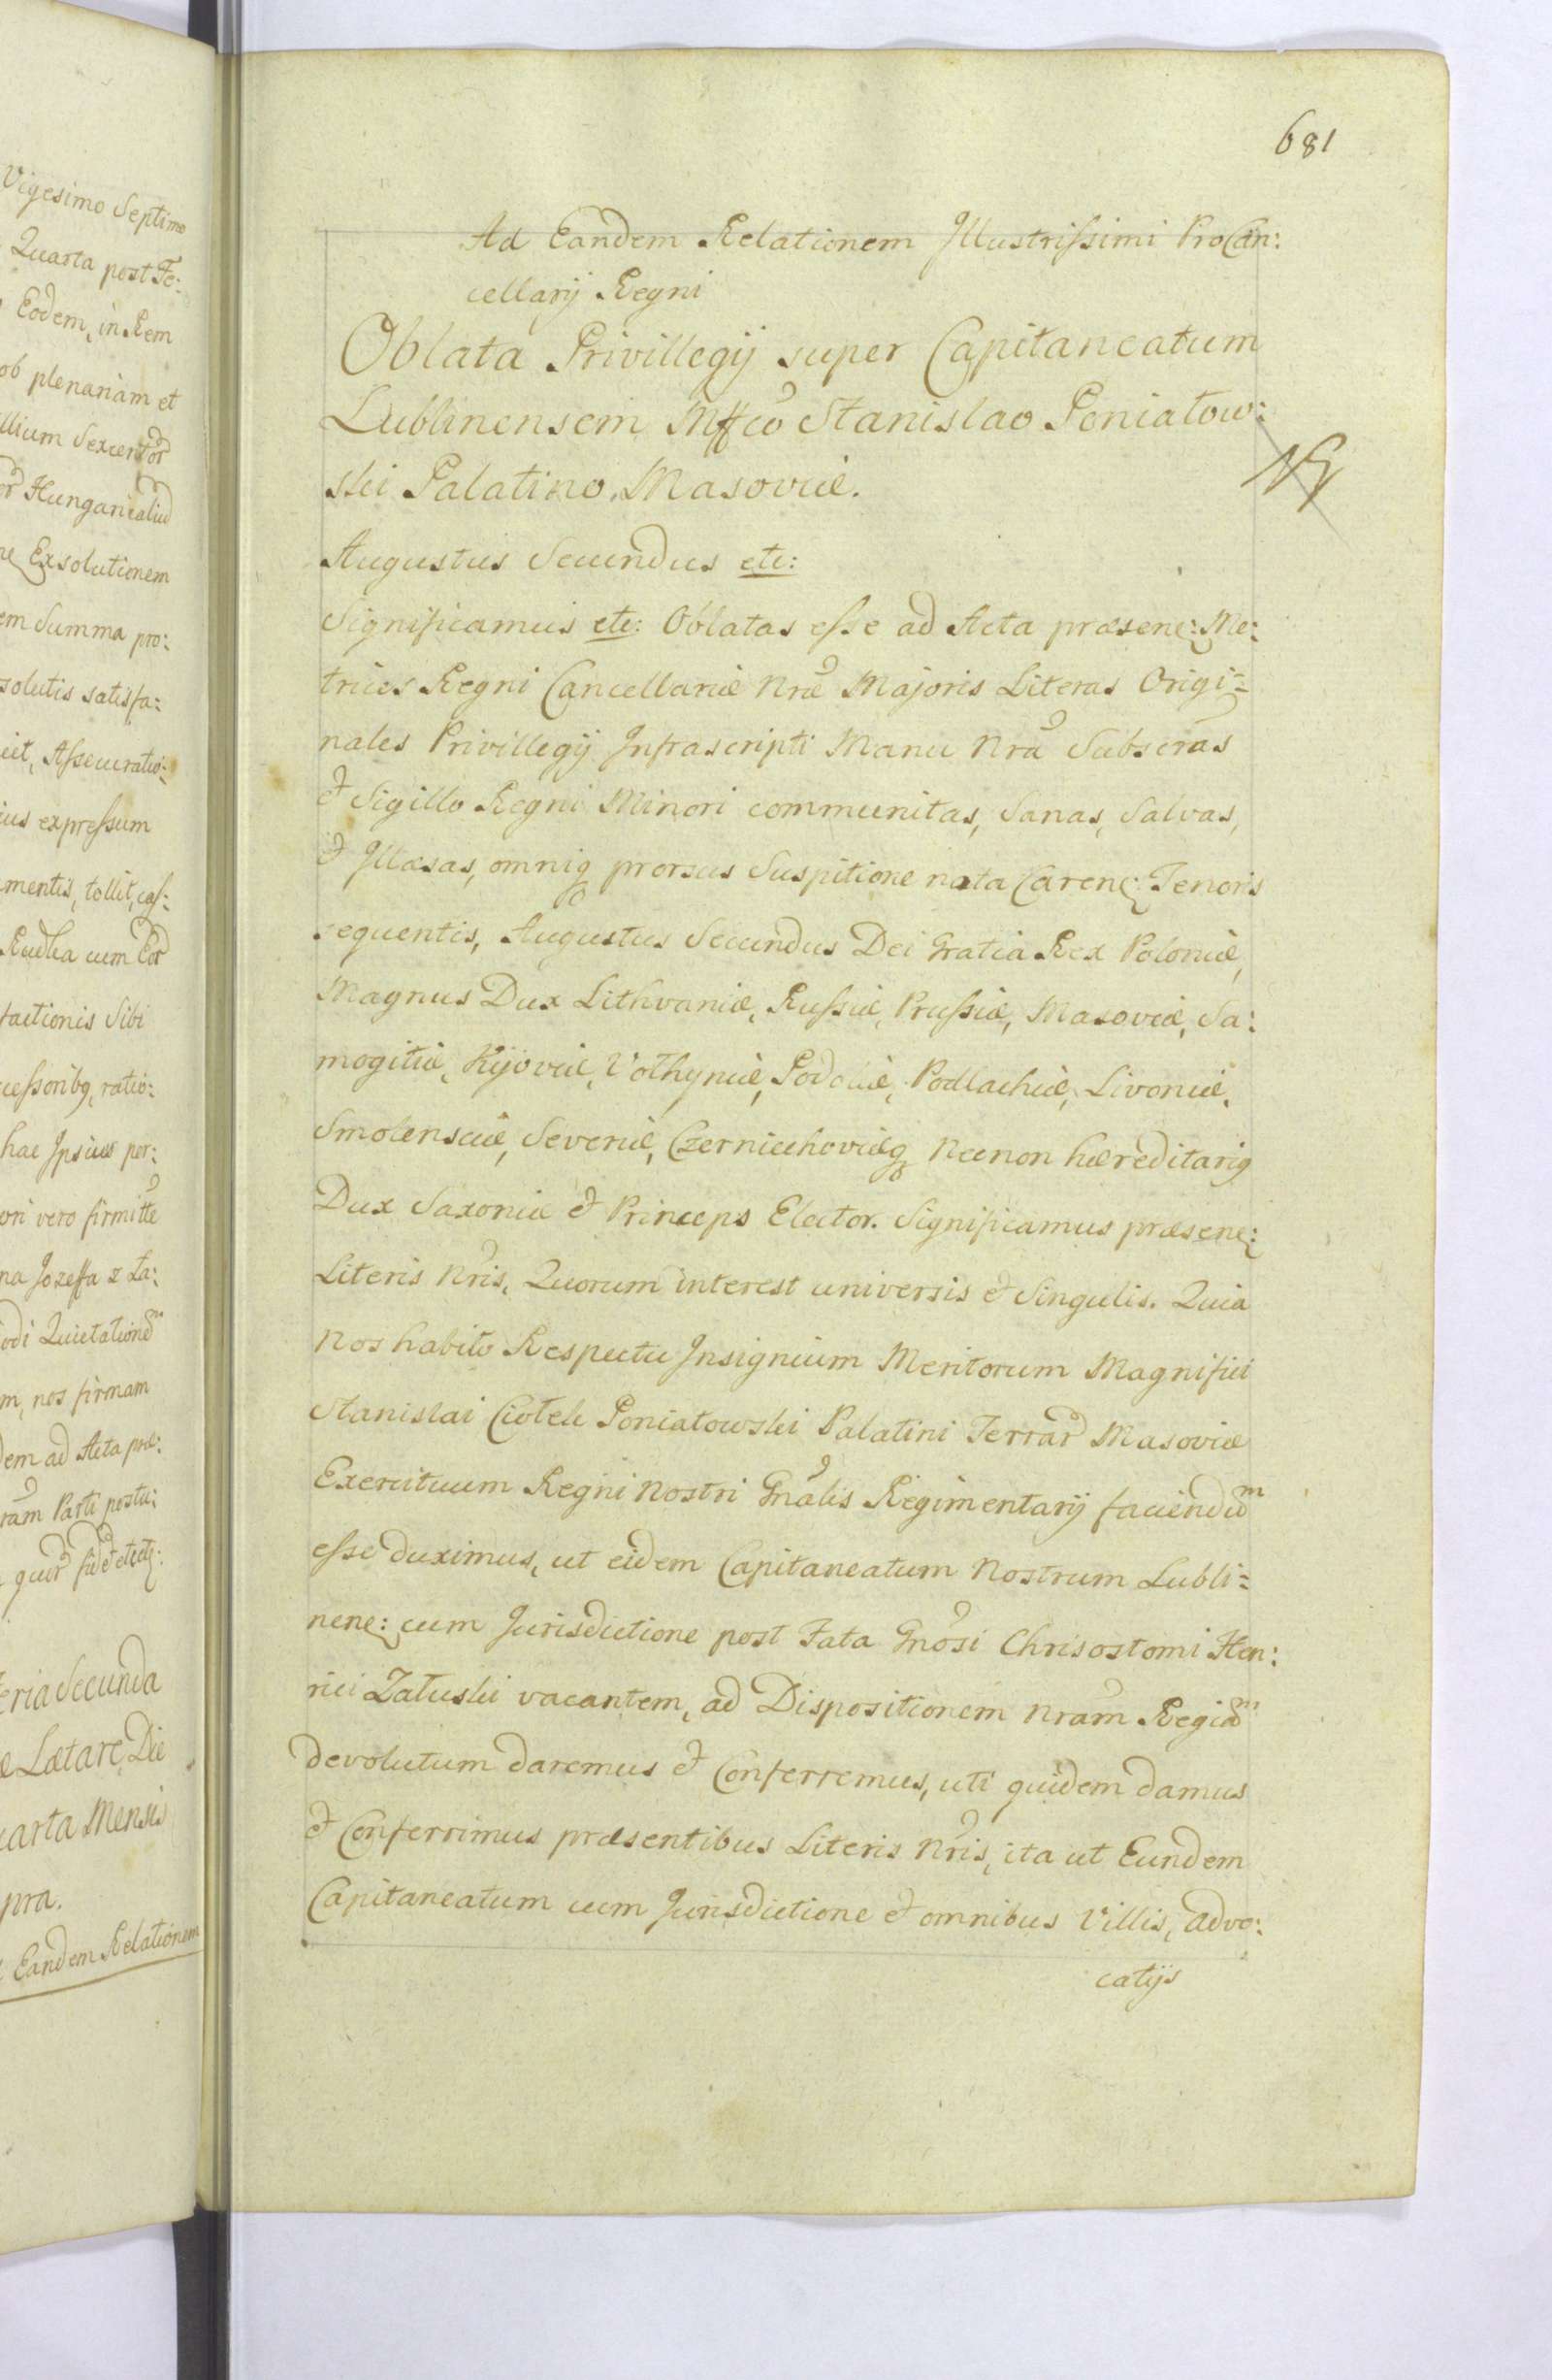 681
Ad Eandem Relationem Illustrissimi ProCan:
cellarij Regni
Oblata Privillegij super Capitaneatum
Lublinensem Mffco Stanislao Poniatow:
ski Palatino Masoviæ.
Augustus Secundus etc:
Significamus etc: Oblatas esse ad Acta præsen: Me:
trices Regni Cancellariæ Nræ Majoris Literas Origi=
nales Privillegij Infrascripti Manu Nra Subscras
& Sigillo Regni Minori communitas, Sanas, Salvas,
& Illæsas, omniq prorsus Suspitione nota Caren: Tenoris
sequentis, Augustus Secundus Dei Gratia Rex Poloniæ,
Magnus Dux Lithvaniæ, Russiæ, Prussiæ, Masoviæ, Sa:
mogitiæ, Kijoviæ, Volhyniæ, Podoliæ, Podlachiæ, Livoniæ,
Smolensciæ, Severiæ, Czerniechoviæq Necnon hæreditarig
Dux Saxoniæ & Princeps Elector. Significamus præsen:
Literis Nris, Quorum interest universis & Singulis. Quia
Nos habito Respectu Insignium Meritorum Magnifici
Stanislai Ciołek Poniatowski Palatini Terrar Masoviæ
Exercituum Regni Nostri Gnalis Regimentarij faciendum
esse duximus, ut eidem Capitaneatum Nostrum Lubli=
nen: cum Jurisdictione post Fata Gnosi Chrisostomi Hen:
rici Załuski vacantem, ad Dispositionem Nram Regiam
devolutum daremus & Conferremus, uti quidem damus
& Conferrimus præsentibus Literis Nris, ita ut Eundem
Capitaneatum cum Jurisdictione & omnibus Villis, Advo:
catijs
Vigesimo Septimo
Quarta post Fe:
Eodem, in Rem
ob plenariam et
Exsolutionem
em Summa pro:
solutis satisfa:
ius expressum
mentis, tollit, cas:
Rudka cum Eor
factionis Sibi
cessoribg, ratio:
hac Ipsius per:
ori vero firmitte
na Jozeffa z Ła:
odi Quietationem
m, nos firmam
dem ad Acta præ:
ram Parti postu:
eria Secunda
æ Lætare, Die
uarta Mensis
pra.
Eandem Relationem